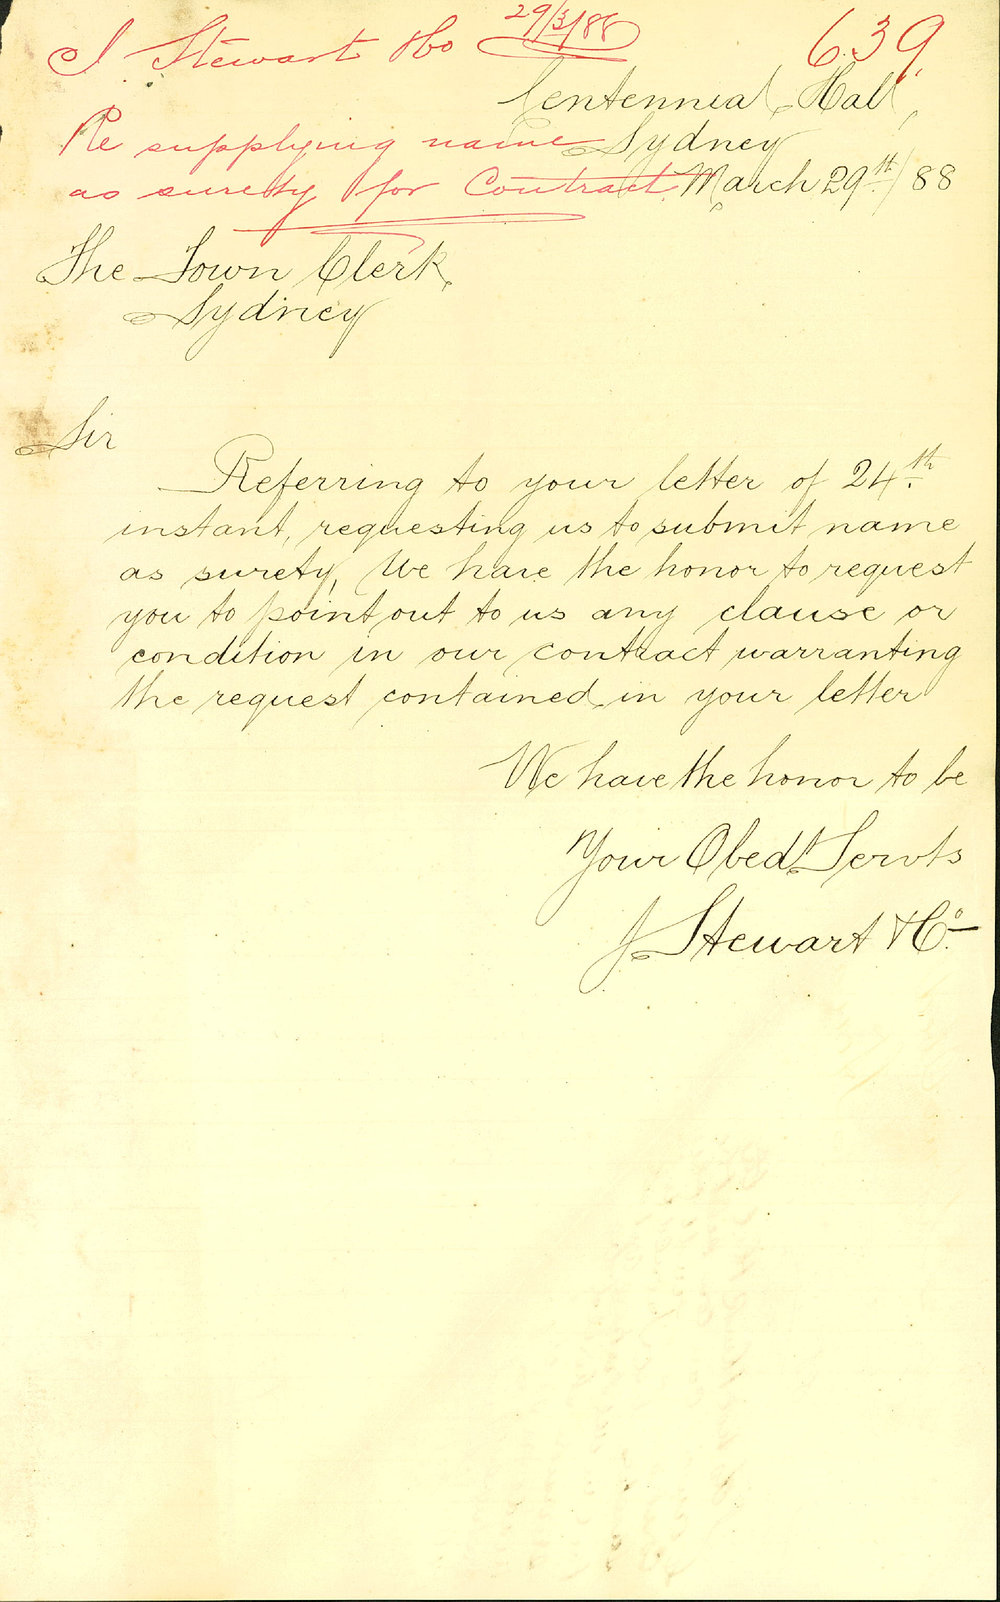 J Stewart & Co 29/3/88
639
Centennial Hall,
Re supplying name
Sydney
as surety for Contract
March 29th/88
The Town Clerk,
Sydney
Sir
Referring to your letter of 24th
instant, requesting us to submit name
as surety, We have the honor to request
you to point out to us any clause or
condition in our contract warranting
the request contained in your letter
We have the honor to be
Your Obedt Servts
J Stewart & Co